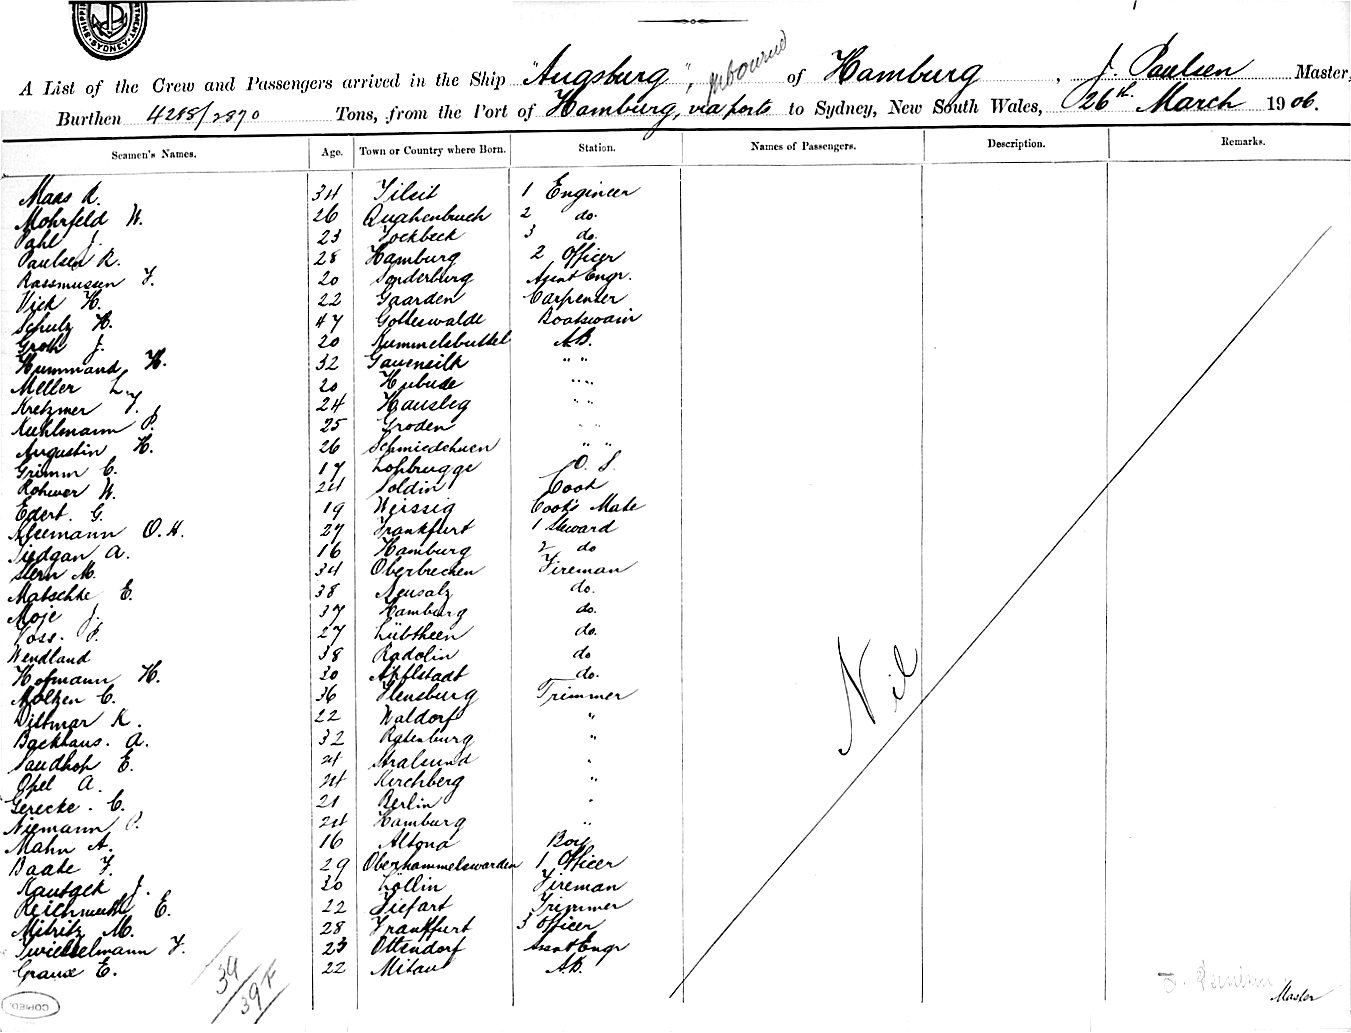 A List of the Crew and Passengers arrived in the Ship "Augsburg", of Hamburg, J. Paulsen Master,
Burthen 4288/2870 Tons, from the Port of Hamburg, via ports to Sydney, New South Wales, 26th March 1906.
Seamen's Names. Age. Town or Country where Born. Station. Names of Passengers. Description. Remarks.
Maas R. 34 Tilsit 1 Engineer
Mohrfeld W. 26 Quakenbruch 2 do.
Pahl J. 23 Jockbeck 3 do.
Paulsen R. 28 Hamburg 2 Officer
Rassmussen F. 20 Sonderburg Assnt Engr.
Vick H. 22 Gaarden Carpenter
Schulz H. 47 Gotteswalde Boatswain
Groth J. 20 Kummelsbuttel A.B.
Hummand H. 32 " "
Meller L. 20 Hubude " "
Kretzmer F. 24 " "
Kuhlmann P. 25 Groden " "
Augustin H. 26 Schmiedehnen " "
Grimm C. 17 Lohbrugge O. S.
Rohwer W. 24 Soldin Cook
Edert. G. 19 Weissig Cook's Mate
Kleemann O. H. 27 Frankfurt 1 Steward
Tiedgan A. 16 Hamburg 2 do
Stern M. 34 Oberbrechen Fireman
Matschke E. 38 Neusalz do.
Moje J. 37 Hamburg do.
Voss. P. 27 Lübtheen do.
Wendland 38 Radolin do
Hofmann H. 30 Apflstadt do.
Moltzen C. 36 Flensburg Trimmer
Dittmar K. 22 Waldorf "
Backhaus. A. 32 Ratenburg "
Sandhop E. 24 Stralsund "
Opel A. 24 Kirchberg "
Gerecke. C. 21 Berlin "
Niemann P. 24 Hamburg "
Mahn A. 16 Altona Boy
Baake F. 29 Oberhammelswarden 1 Officer
Kautgek J. 30 Lollin Fireman
Reichmuth E. 22 Tiefart Trimmer
Mitritz M. 28 Frankfurt 3 Officer
Twiesselmann F. 23 Ottendorf Assnt Engr
Graux E. 22 Mitau A.B.
Nil
39
39 F
Master
COMED.